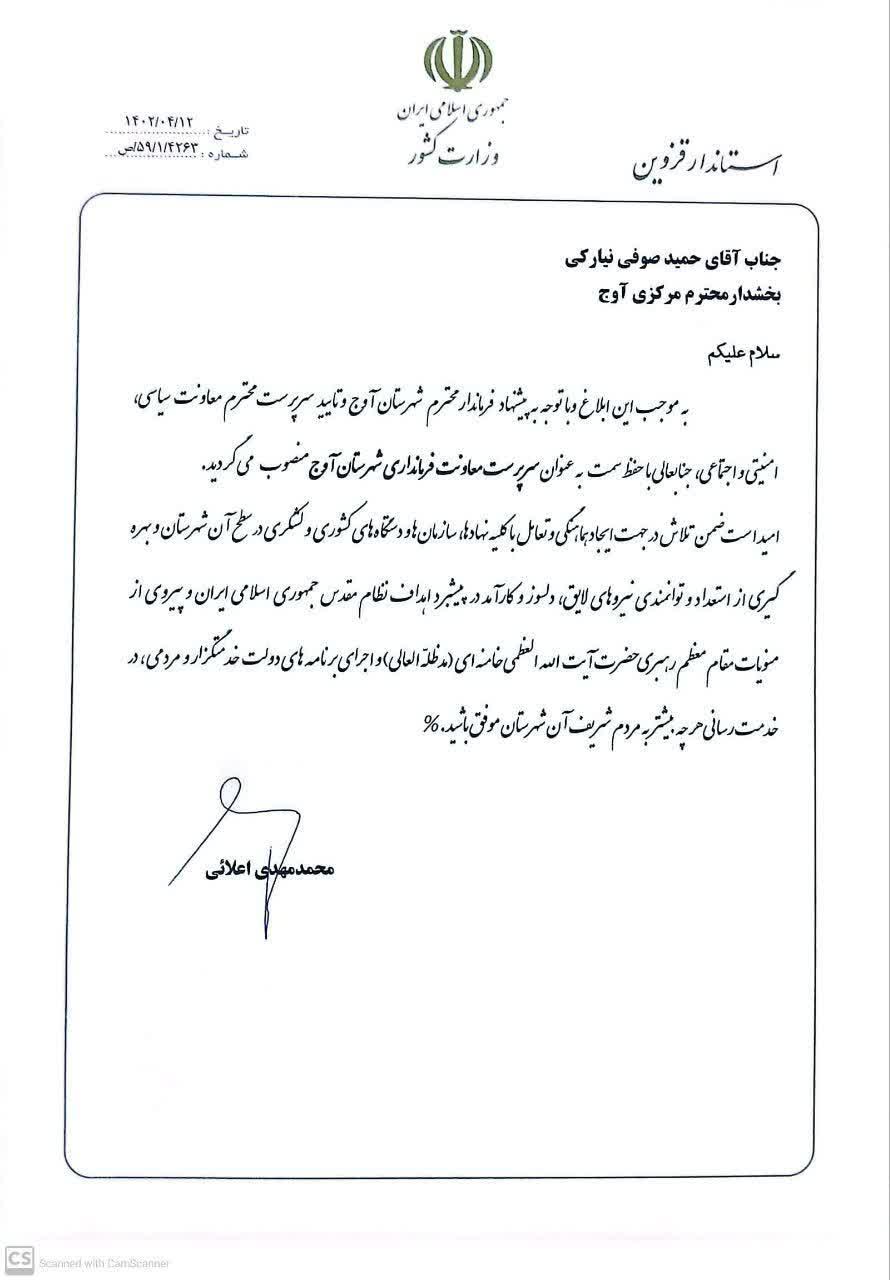 جمهوری اسلامی ایران
وزارت کشور
استاندار قزوین
تاریخ : ۱۴۰۲/۰۴/۱۲
شماره : ۵۹/۱/۴۲۶۳/ص
جناب آقای حمید صوفی نیارکی
بخشدار محترم مرکزی آوج
سلام علیکم
به موجب این ابلاغ و با توجه به پیشنهاد فرماندار محترم شهرستان آوج و تایید سرپرست محترم معاونت سیاسی،
امنیتی و اجتماعی، جنابعالی با حفظ سمت به عنوان سرپرست معاونت فرمانداری شهرستان آوج منصوب می گردید.
امید است ضمن تلاش در جهت ایجاد هماهنگی و تعامل با کلیه نهادها، سازمان ها و دستگاه های کشوری و لشگری در سطح آن شهرستان و بهره
گیری از استعداد و توانمندی نیروهای لایق، دلسوز و کارآمد در پیشبرد اهداف نظام مقدس جمهوری اسلامی ایران و پیروی از
منویات مقام معظم رهبری حضرت آیت الله العظمی خامنه ای (مدظلّه العالی) و اجرای برنامه های دولت خدمتگزار و مردمی، در
خدمت رسانی هر چه بیشتر به مردم شریف آن شهرستان موفق باشید.%
محمدمهدی اعلائی
CS Scanned with CamScanner